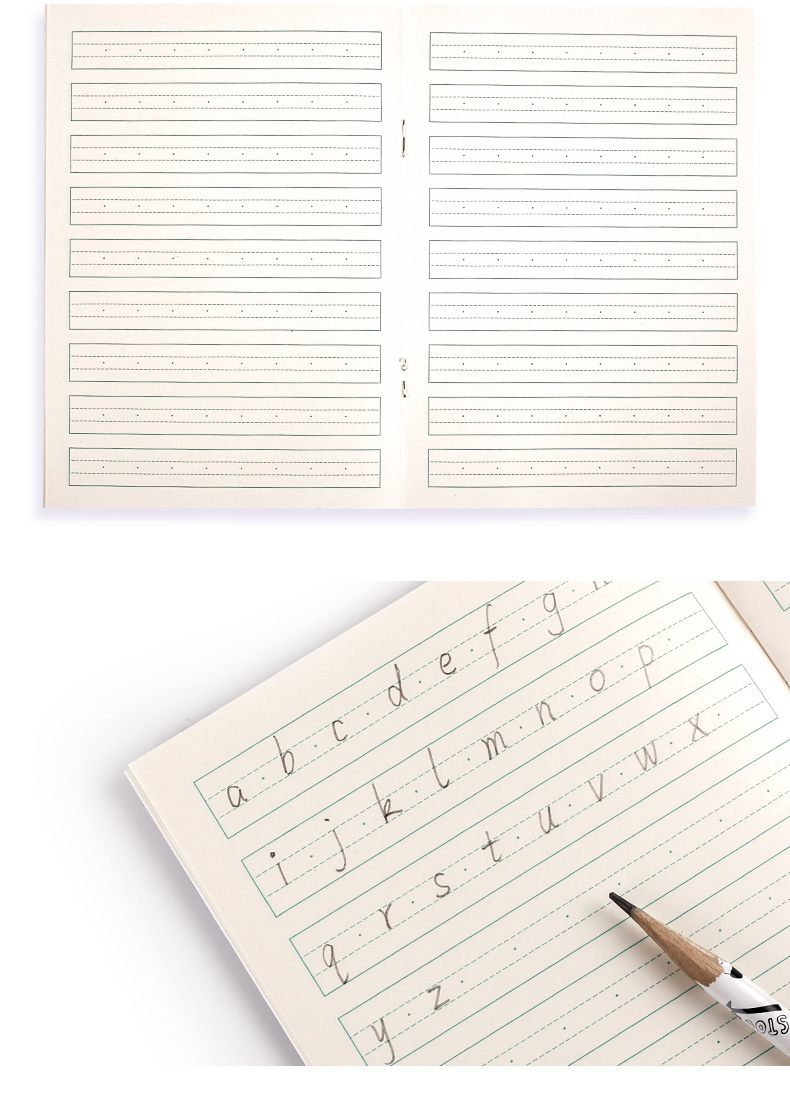 a b c d e f g
i j k l m n o p
q r s t u v w x
y z